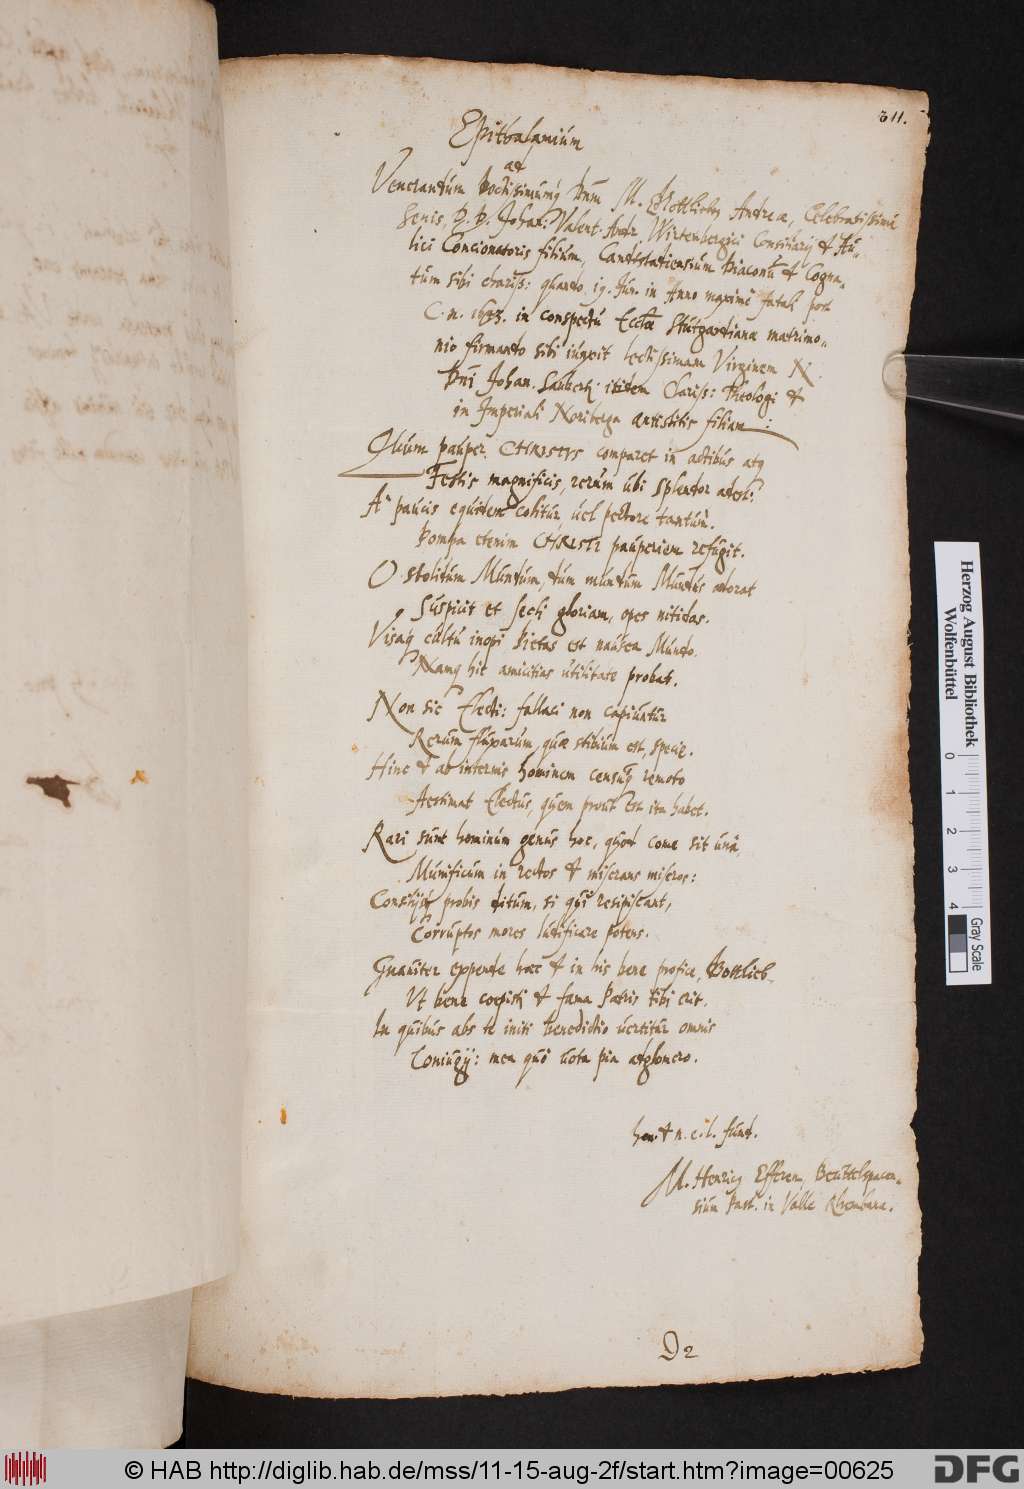 311.
Epithalamium
ad
Venerandum Doctissimumq Dnm M. Gottliebū Andreæ, Celebratissimi
Senis, D. D. Johan: Valent: Andr Wirtembergici Consiliarij & Au„
lici Concionatoris filium, Candtstadiensium Diaconū & Cogna„
tum sibi chariss: quando 19. Jun. in Anno maxime fatali post
C. n. 1643. in conspectu Eccłæ Stutgardianæ matrimo„
nio firmando sibi iungit lectissimam Virginem N.
Dnj Johan. Sauberti itidem Clariss: Theologi &
in Imperiali Noriberga antistitis filiam:
Quum pauper CHRISTUS comparet in actibus atq
Festis magnificis, rerum ubi splendor adest:
A paucis equidem colitur, uel pectore tantum.
Pompa etenim CHRISTI pauperiem refugit.
O stolidum Mundum, dum mundum Mundus adorat
Suspicit et secli gloriam, opes nitidas.
Visaq cultu inopi Pietas est nausea Mundo.
Namq hic amicitias utilitate probat.
Non sic Electi: fallaci non capiuntur
Rerum fluxarum, quæ stibium est, specie.
Hinc & ab internis hominem censuq remoto
Aestimat Electus, quem prout est ita habet.
Rari sunt hominum genus hoc, quod come sit unà,
Munificum in rectos & miserans miseros:
Consilijs probis ditum, si qui resipiscant,
Corruptos mores ludificare potens.
Gnauiter expende hæc & in his bene profice, Gottlieb.
Ut bene coepisti & fama Patris tibi erit.
In quibus abs te initi benedictio uertitur omnis
Coniugij: mea quo uota pia adglomero.
hon. & n. c. l. fund.
M. Henricq Efferen, Beuttelspacen„
sium Past. in Valle Rhembana.
D2
Herzog August Bibliothek
Wolfenbüttel
0 1 2 3 4
Gray Scale
© HAB http://diglib.hab.de/mss/11-15-aug-2f/start.htm?image=00625
DFG